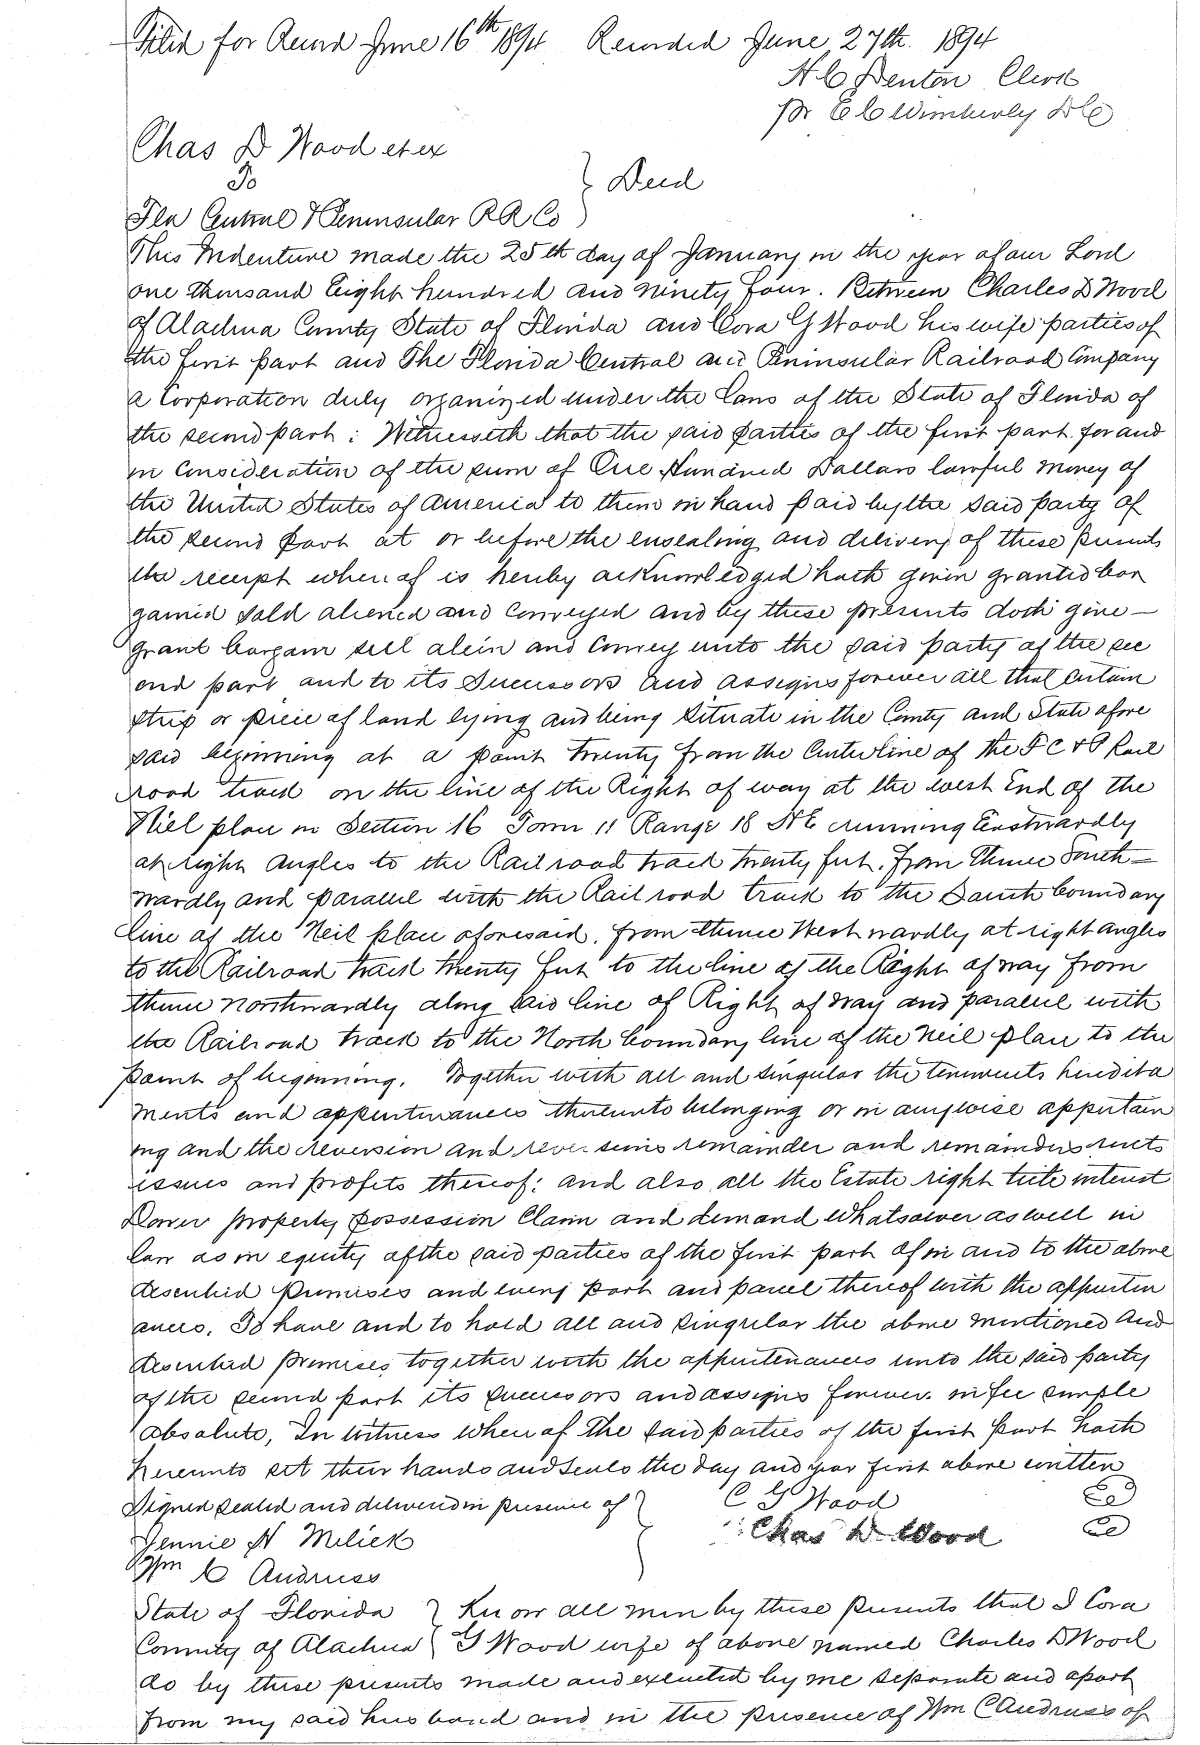 Filed for Record June 16th 1894 Recorded June 27th. 1894
H C Denton Clerk
pr E C Wimberly D C
Chas D Wood et ex
To } Deed
Fla Central & Peninsular R R Co
This Indenture made the 25th day of January in the year of our Lord
one thousand Eight hundred and ninety four. Between Charles D Wood
of Alachua County State of Florida and Cora G Wood his wife parties of
the first part and The Florida Central and Peninsular Railroad Company
a Corporation duly organized under the Laws of the State of Florida of
the second part: Witnesseth that the said parties of the first part for and
in consideration of the sum of One Hundred Dollars lawful money of
the United States of America to them in hand paid by the said party of
the second part at or before the ensealing and delivery of these presents
the receipt whereof is hereby acknowledged hath given granted bar
gained sold aliened and conveyed and by these presents doth give—
grant bargain sell alein and convey unto the said party of the sec
ond part and to its Successors and assigns forever all that certain
strip or piece of land lying and being situate in the County and State afore
said beginning at a point twenty from the Center line of the F C & P Rail
road track on the line of the Right of way at the west End of the
Niel place in Section 16 Town 11 Range 18 N E running Eastwardly
at right angles to the Railroad track twenty feet. from thence South=
wardly and parallel with the Rail road track to the South boundary
line of the Neil place aforesaid. from thence West wardly at right angles
to the Railroad track twenty feet to the line of the Right of way from
thence northwardly along said line of Right of way and parallel with
the Railroad track to the North boundary line of the Neil place to the
point of beginning. Together with all and singular the tenements heredita
ments and appurtenances thereunto belonging or in anywise appertain
ing and the reversion and reversions remainder and remainders rents
issues and profits thereof: and also all the Estate right title interest
Dower property possession Claim and demand whatsoever as well in
law as in equity of the said parties of the first part of in and to the above
described premises and every part and parcel thereof with the appurten
ances. To have and to hold all and singular the above mentioned and
described premises together with the appurtenances unto the said party
of the second part its successors and assigns forever in fee simple
absolute, In witness whereof the said parties of the first part hath
hereunto set their hands and seals the day and year first above written
Signed sealed and delivered in presence of } C G Wood
Jennie N Melick Chas D. Wood
Wm C Andruss
State of Florida } Know all men by these presents that I Cora
County of Alachua } G Wood wife of above named Charles D Wood
do by these presents made and executed by me separate and apart
from my said husband and in the presence of Wm C Andruss of